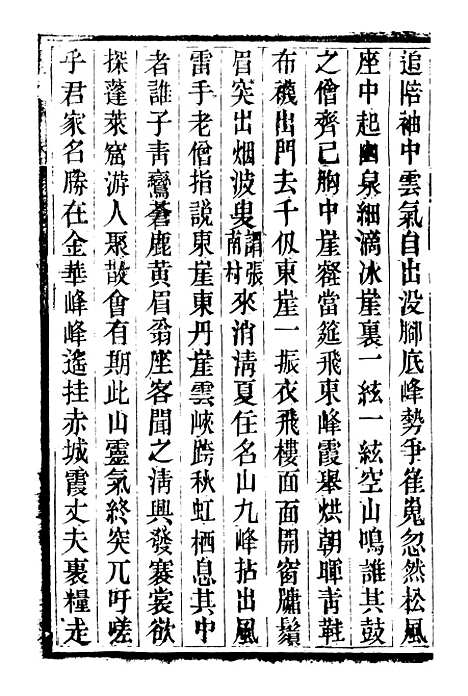 追陪袖中雲氣自出没腳底峰勢爭崔嵬忽然松風
座中起幽泉細滴氷崖裏一絃一絃空山鳴誰其鼓
之僧齊己胸中崖窾當筵飛東峰霞舉烘朝暉靑鞵
布襪出門去千仭東崖一振衣飛樓面面開窗牗鬚
眉突出烟波叟謂張南村來消淸夏任名山九峰拈出風
雷手老僧指說東崖東丹崖雲峽跨秋虹栖息其中
者誰子靑鸞蒼鹿黄眉翁座客聞之淸興發褰裳欲
探蓬萊窟游人聚散會有期此山靈氣終突兀吁嗟
乎君家名勝在金華峰峰遙挂赤城霞丈夫裹糧走